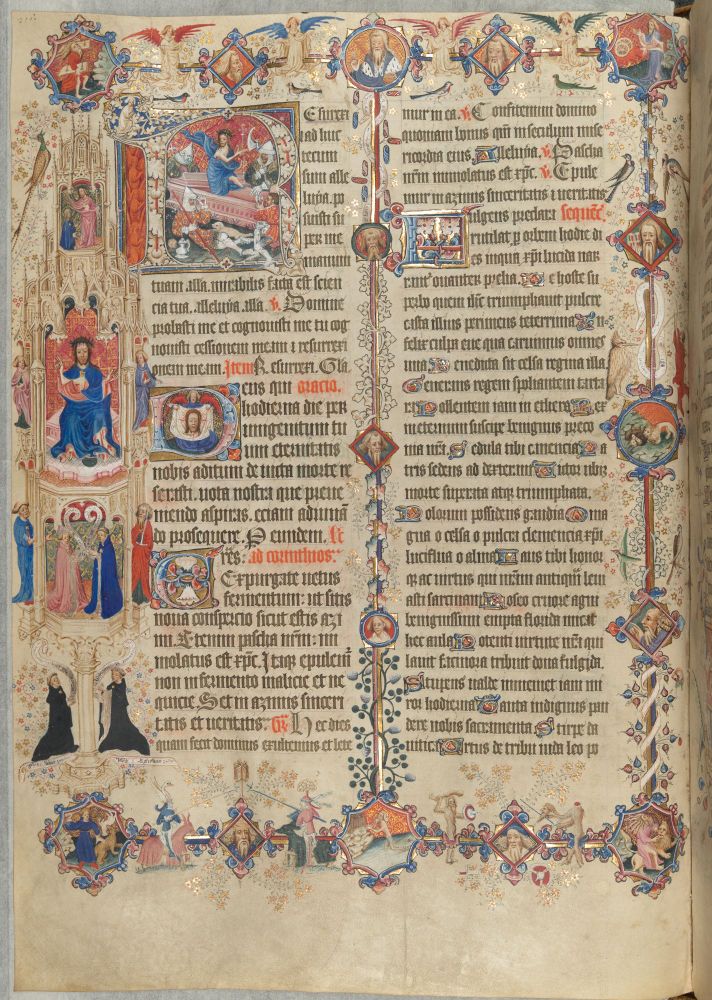 Esurexi
ad huc
tecum
sum alle
luya. po
suisti su
per me
manum
tuam. alla. mirabilis facta est scien
cia tua. alleluya. alla. V. Domine
probasti me et cognouisti me tu cog
nouisti cessionem meam & resurrexi
onem meam. Item R. esurexi. Gla
Deus qui oracio.
hodierna die per
unigenitum tu
um eternitatis
nobis aditum de uicta morte re
serasti. uota nostra que preue
niendo aspiras. eciam adiuuan
do prosequere. P eundem. Lc
ad corinthios.
Expurgate uetus
fermentum: ut sitis
noua conspercio sicut estis azi
mi. Etenim pascha nrm: im
molatus est xpc. Itaq epulem
non in fermento malicie et ne
quicie Set in azimis sinceri
tatis et ueritatis. Gr. Hec dies
quam fecit dominus exultemus et lete
mur in ea. V. Confitemini domino
quoniam bonus qm in seculum mise
ricordia eius. Alleluya. V. Pascha
nrm immolatus est xpc. V. Epule
mur in azimis sinceritatis & ueritatis
Fulgens preclara sequenc
rutilat p orbem hodie di
es in qua xpi lucida nar
rant ouanter prelia. De hoste su
perbo quem ihc triumphauit pulcre
castra illius perimens teterrima. In
felix culpa eue qua caruimus omnes
uita. Benedicta sit celsa regina illa
Generans regem spoliantem tarta
ra. Pollentem iam in ethera. Rex
in eternum suscipe benignus preco
nia nra. Sedula tibi canencia. Pa
tris sedens ad dexteram. Victor ubiq
morte superata atq triumphata.
Polorum possidens gaudia. O ma
gna o celsa o pulcra clemencia xpi
luciflua o alma. Laus tibi honor
q ac uirtus qui nram antiquam leui
asti sarcinam. Roseo cruore agni
benignissimi empta florida micat
hec aula. Potenti uirtute nri qui
lauit facinora tribuit dona fulgida.
Stupens ualde in memet iam mi
ror hodierna. Tanta indignis pan
dere nobis sacramenta. Stirpe da
uitica. Ortus de tribu iuda leo po